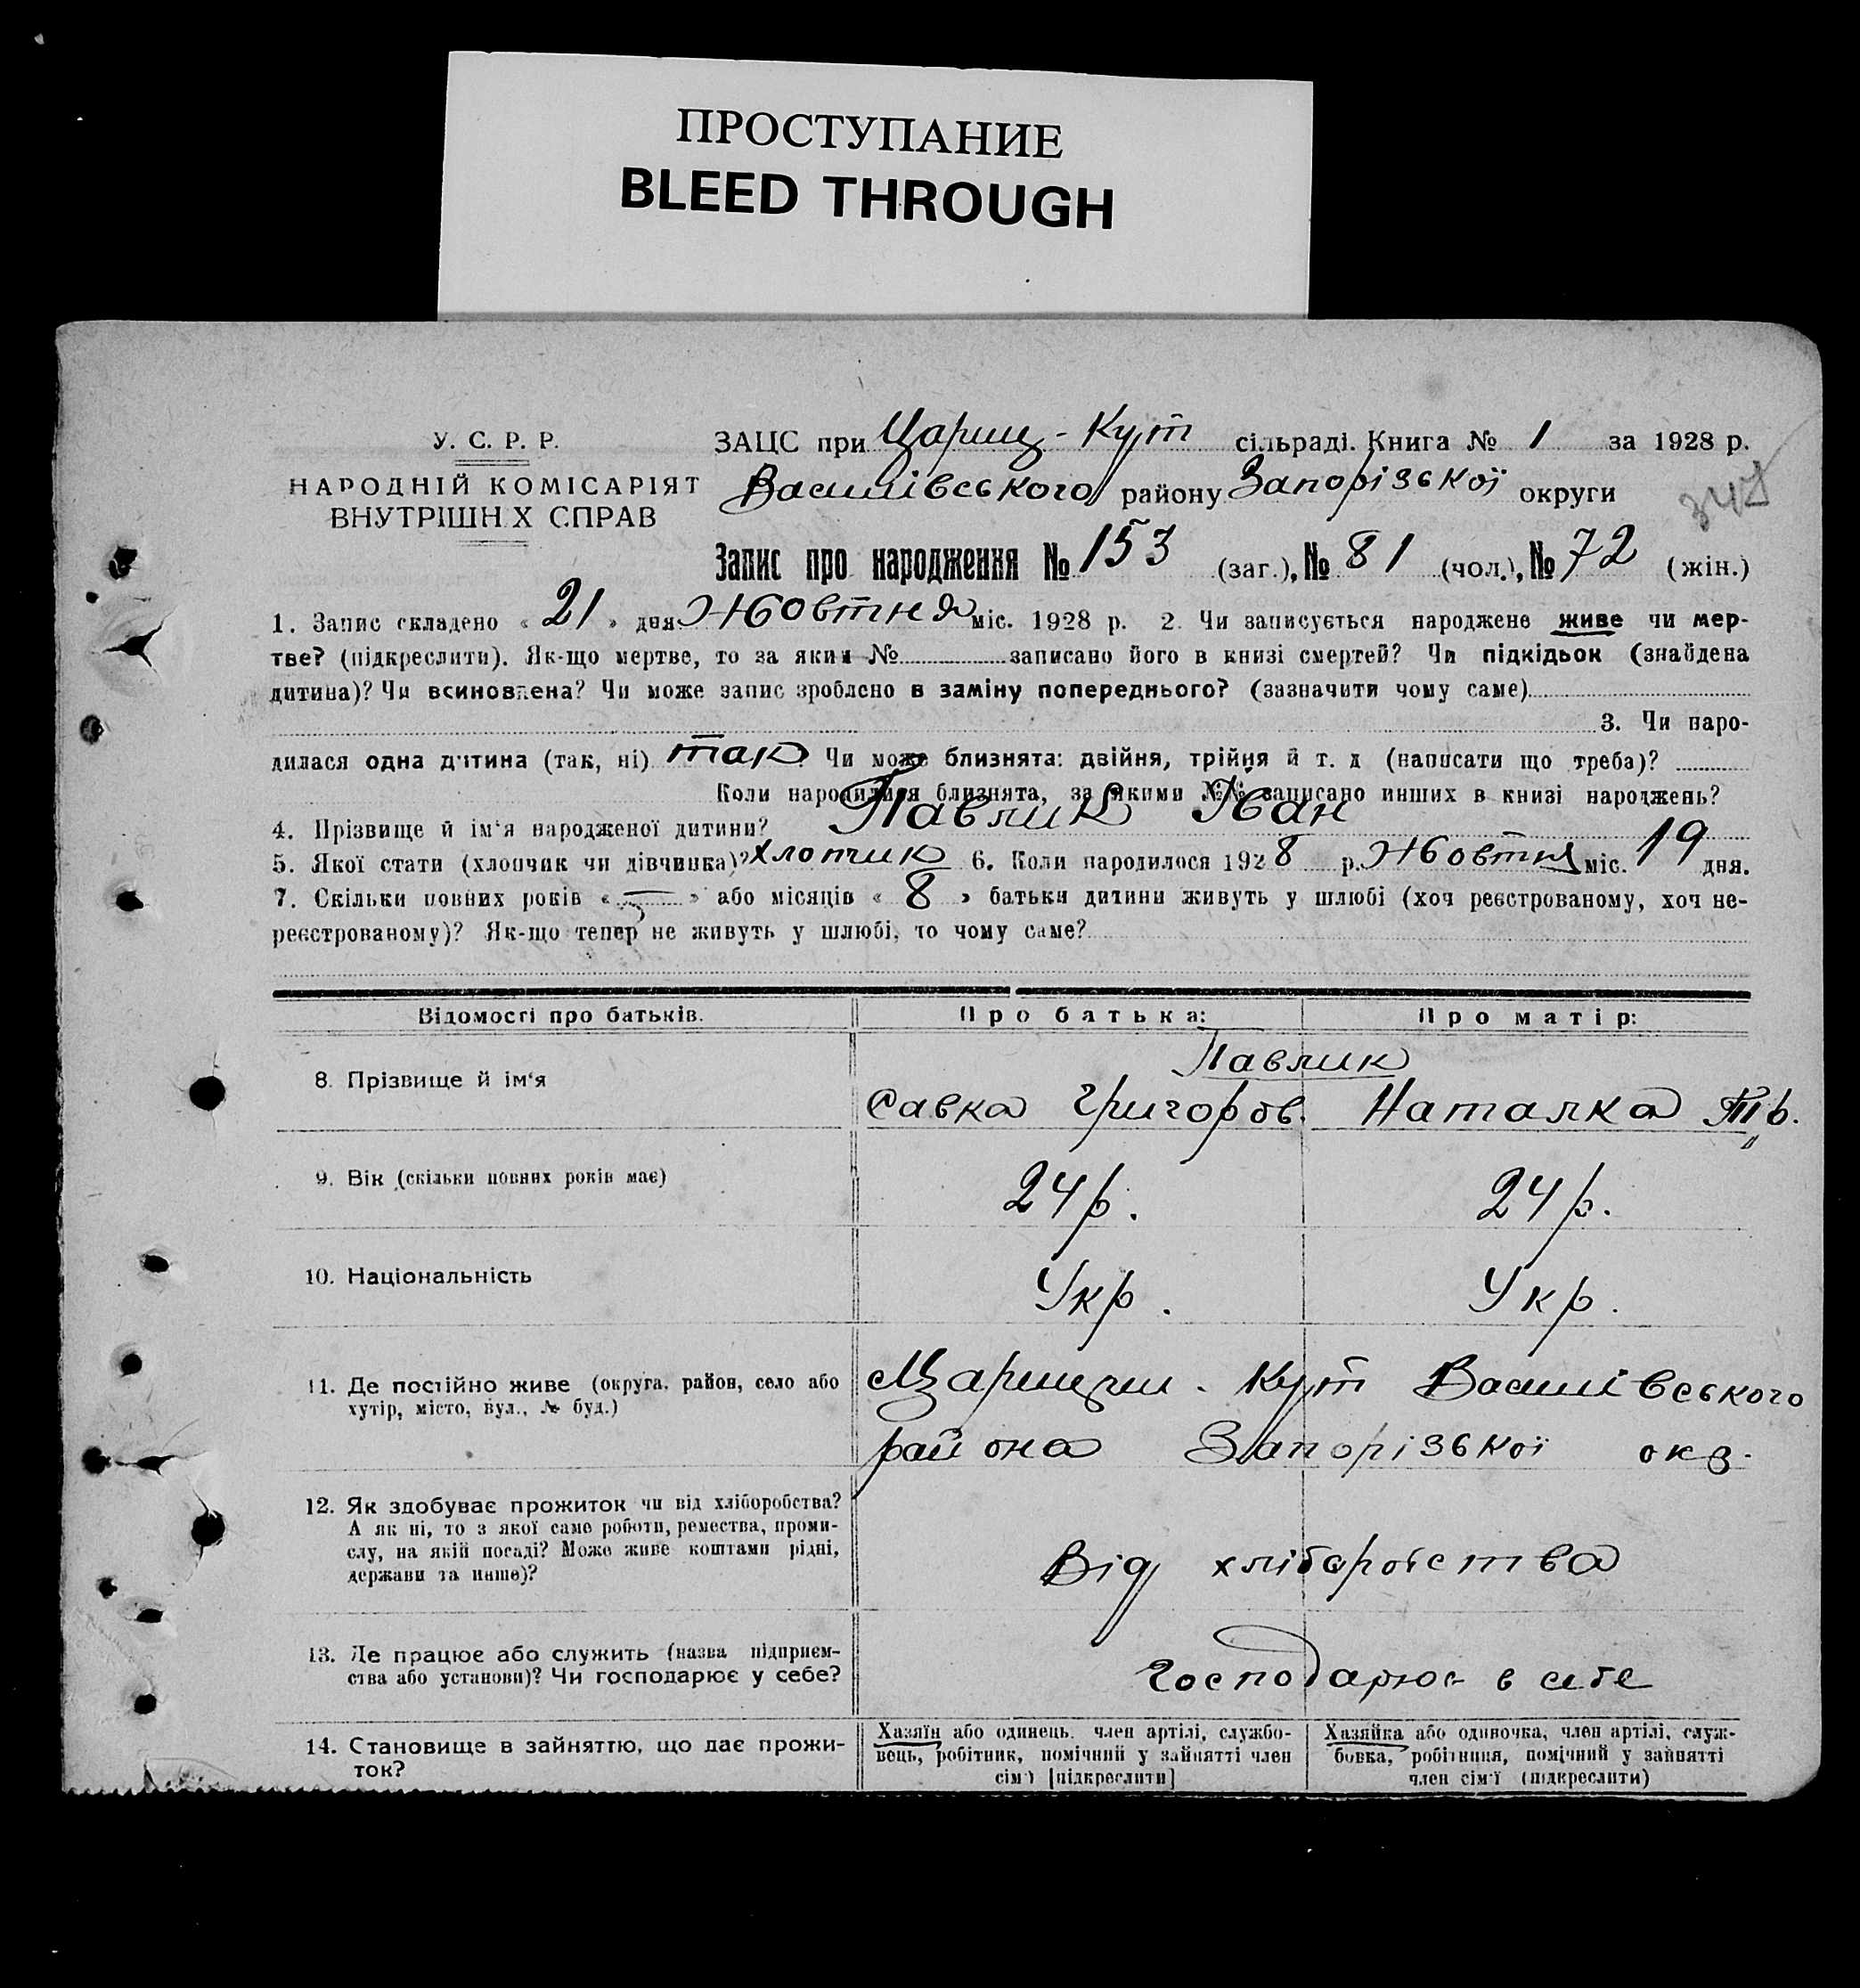 ПРОСТУПАНИЕ
BLEED THROUGH
У. С. Р. Р.
НАРОДНІЙ КОМІСАРІЯТ
ВНУТРІШН Х СПРАВ
ЗАЦС при Цариц-Кут сільраді. Книга № 1 за 1928 р.
Василівського району Запорізької округи
347
Запис про народження № 153 (заг.), № 81 (чол.), № 72 (жін.)
1. Запис складено « 21 » дня Жовтня міс. 1928 р. 2. Чи записується народжене живе чи мер-
тве? (підкреслити). Як-що мертве, то за яким № записано його в книзі смертей? Чи підкідьок (знайдена
дитина)? Чи всиновлена? Чи може запис зроблено в заміну попереднього? (зазначити чому саме)
3. Чи наро-
дилася одна дитина (так, ні) так Чи може близнята: двійня, трійня й т. д (написати що треба)?
Коли народилися близнята, за якими №№ записано инших в книзі народжень?
4. Прізвище й ім'я народженої дитини? Павлик Іван
5. Якої стати (хлопчик чи дівчинка)? хлопчик 6. Коли народилося 1928 р. Жовтня міс. 19 дня.
7. Скільки повних років « — » або місяців « 8 » батьки дитини живуть у шлюбі (хоч реєстрованому, хоч не-
реєстрованому)? Як-що тепер не живуть у шлюбі, то чому саме?
Відомості про батьків. Про батька: Про матір:
Павлик
8. Прізвище й ім'я Савка Григоров. Наталка Тр.
9. Вік (скільки повних років має) 24 р. 24 р.
10. Національність Укр. Укр.
11. Де постійно живе (округа, район, село або
хутір, місто, вул., № буд.)
Царицин-Кут Василівського
района Запорізької окр.
12. Як здобуває прожиток чи від хліборобства?
А як ні, то з якої саме роботи, ремества, проми-
слу, на якій посаді? Може живе коштами рідні,
держави та инше)?
Від хліборобства
13. Де працює або служить (назва підприєм-
ства або установи)? Чи господарює у себе?
Господарює в себе
14. Становище в зайняттю, що дає прожи-
ток?
Хазяїн або одинець, член артілі, службо-
вець, робітник, помічний у зайнятті член
сім'ї [підкреслити]
Хазяйка або одиночка, член артілі, служ-
бовка, робітниця, помічний у зайнятті
член сім'ї (підкреслити)